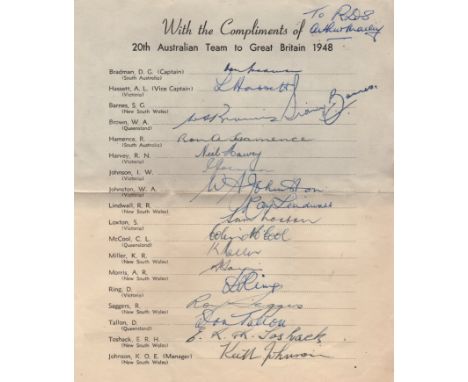 With the Compliments of
To RDS
Arthur Mailey
20th Australian Team to Great Britain 1948
Bradman, D. G. (Captain)
(South Australia)
Hassett, A. L. (Vice Captain) L Hassett
(Victoria)
Barnes, S. G. Sidney Barnes
(New South Wales)
Brown, W. A.
(Queensland)
Hamence, R. Ron A Hamence
(South Australia)
Harvey, R. N. Neil Harvey
(Victoria)
Johnson, I. W.
(Victoria)
Johnston, W. A. W A Johnston
(Victoria)
Lindwall, R. R. Ray Lindwall
(New South Wales)
Loxton, S. Sam Loxton
(Victoria)
McCool, C. L. Colin McCool
(Queensland)
Miller, K. R. K Miller
(New South Wales)
Morris, A. R.
(New South Wales)
Ring, D. D Ring
(Victoria)
Saggers, R. Ron Saggers
(New South Wales)
Tallon, D. Don Tallon
(Queensland)
Toshack, E. R. H. E. R. H. Toshack
(New South Wales)
Johnson, K. O. E. (Manager) Keith Johnson
(New South Wales)